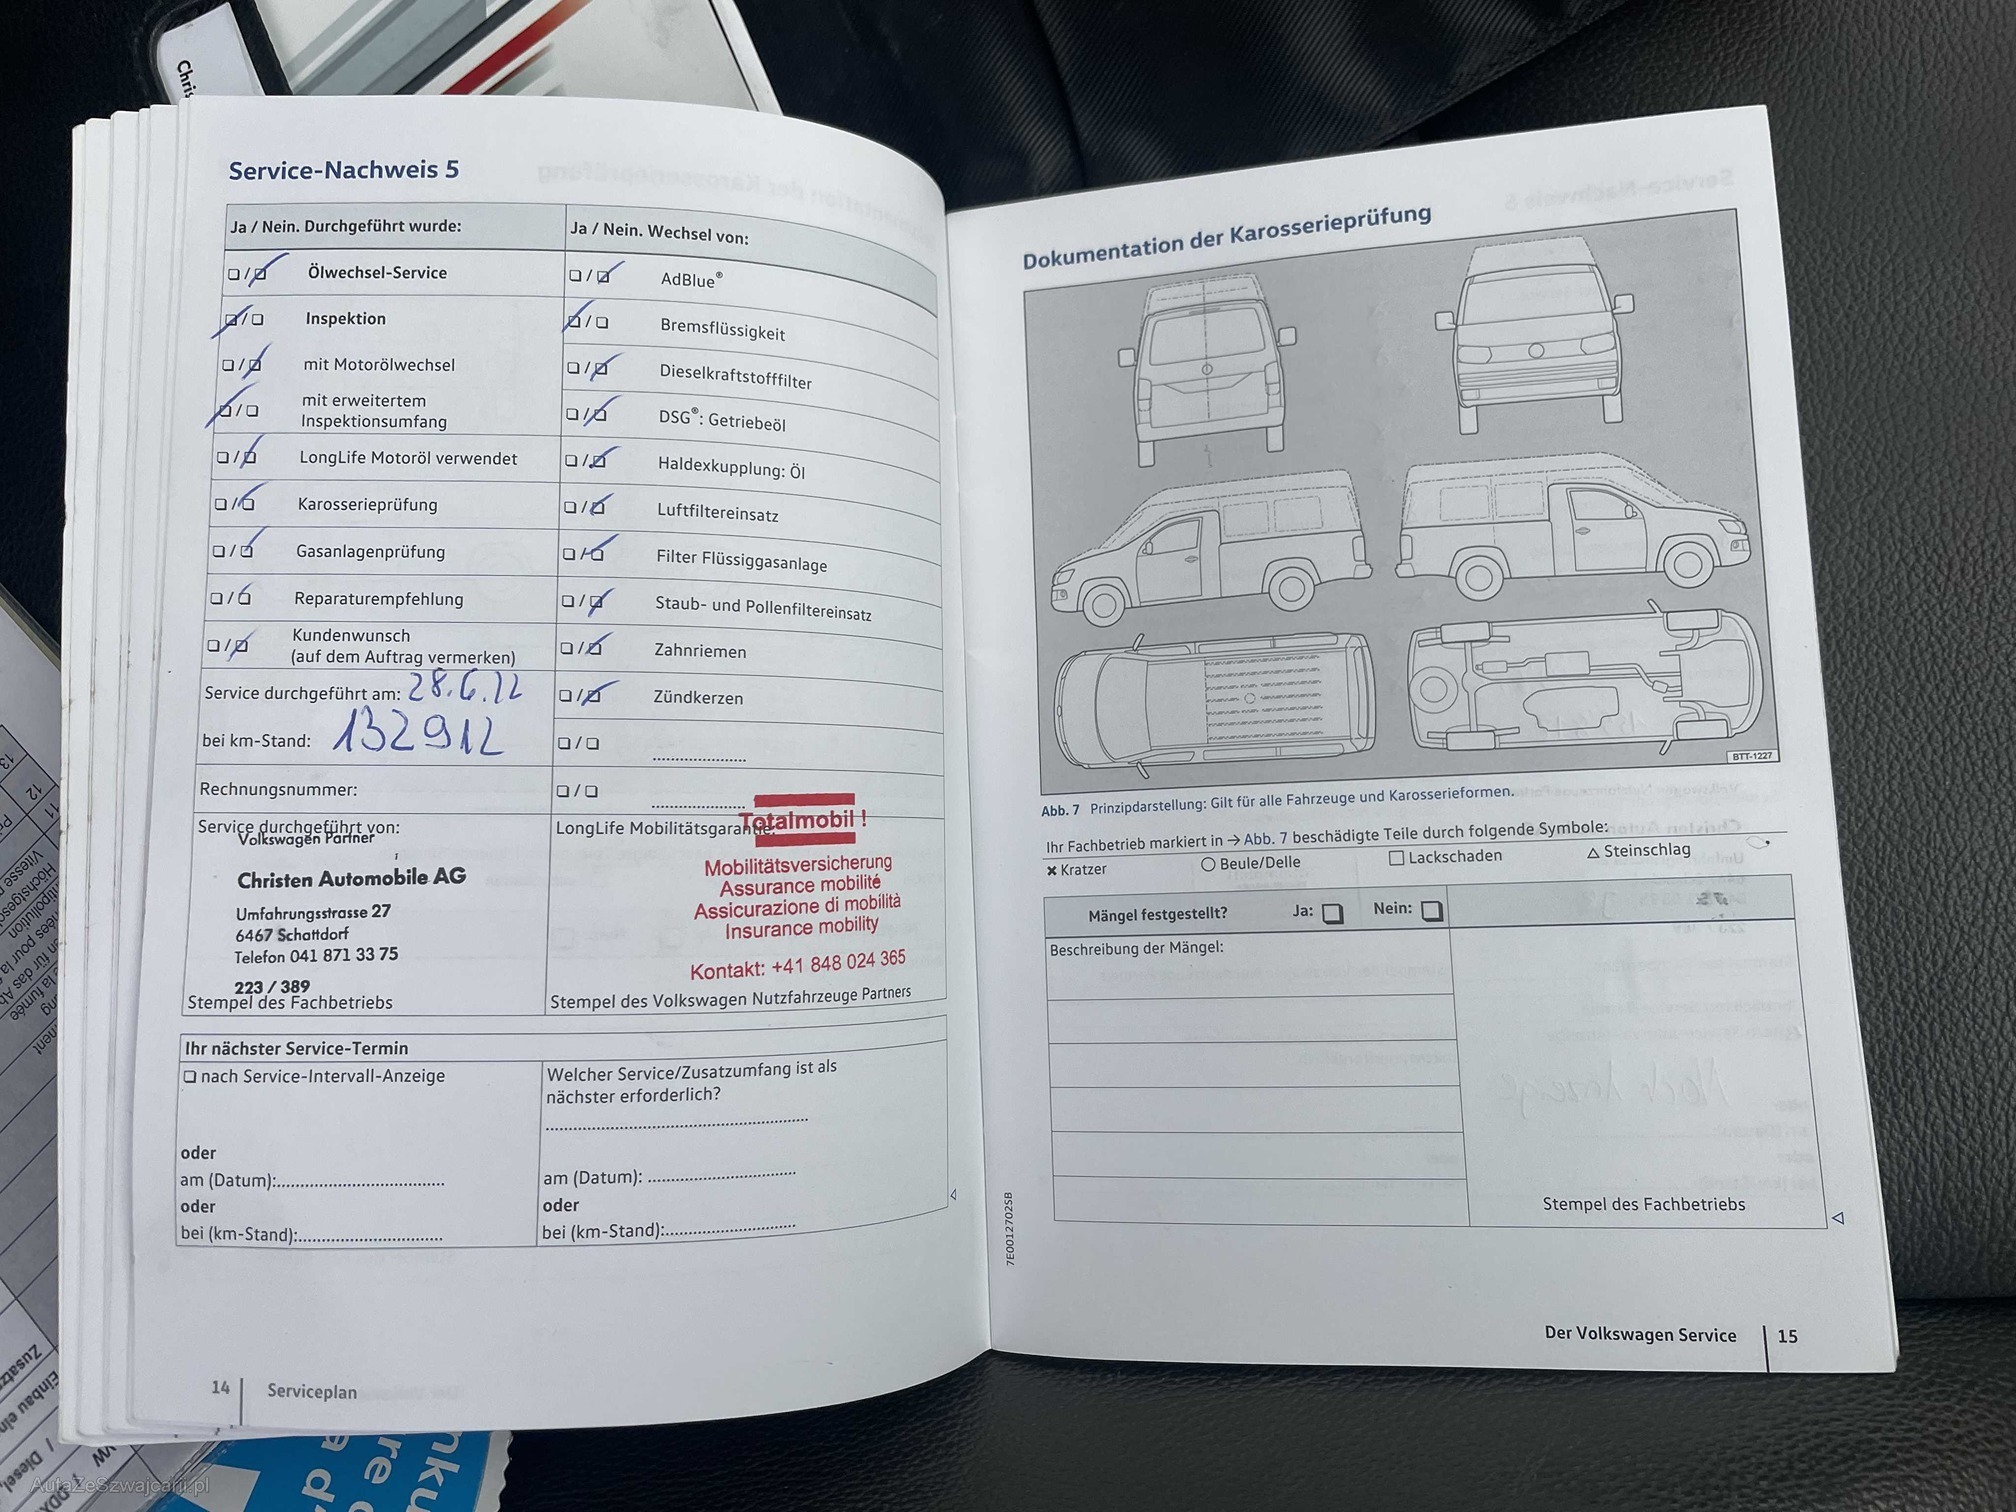 Chris
Service-Nachweis 5
Ja / Nein. Durchgeführt wurde:
Ja / Nein. Wechsel von:
Ölwechsel-Service
AdBlue®
Inspektion
Bremsflüssigkeit
mit Motorölwechsel
Dieselkraftstofffilter
mit erweitertem
Inspektionsumfang
DSG®: Getriebeöl
LongLife Motoröl verwendet
Haldexkupplung: Öl
Karosserieprüfung
Luftfiltereinsatz
Gasanlagenprüfung
Filter Flüssiggasanlage
Reparaturempfehlung
Staub- und Pollenfiltereinsatz
Kundenwunsch
(auf dem Auftrag vermerken)
Zahnriemen
Service durchgeführt am: 28.6.22
Zündkerzen
bei km-Stand: 132912
Rechnungsnummer:
Service durchgeführt von:
Volkswagen Partner
Christen Automobile AG
Umfahrungsstrasse 27
6467 Schattdorf
Telefon 041 871 33 75
223 / 389
Stempel des Fachbetriebs
LongLife Mobilitätsgarantie:
Totalmobil !
Mobilitätsversicherung
Assurance mobilité
Assicurazione di mobilità
Insurance mobility
Kontakt: +41 848 024 365
Stempel des Volkswagen Nutzfahrzeuge Partners
Ihr nächster Service-Termin
nach Service-Intervall-Anzeige
oder
am (Datum):
oder
bei (km-Stand):
Welcher Service/Zusatzumfang ist als
nächster erforderlich?
am (Datum):
oder
bei (km-Stand):
14 Serviceplan
Dokumentation der Karosserieprüfung
BTT-1227
Abb. 7 Prinzipdarstellung: Gilt für alle Fahrzeuge und Karosserieformen.
Ihr Fachbetrieb markiert in → Abb. 7 beschädigte Teile durch folgende Symbole:
Kratzer
Beule/Delle
Lackschaden
Steinschlag
Mängel festgestellt? Ja: Nein:
Beschreibung der Mängel:
Stempel des Fachbetriebs
7E0012702SB
Der Volkswagen Service 15
AutaZeSzwajcarii.pl